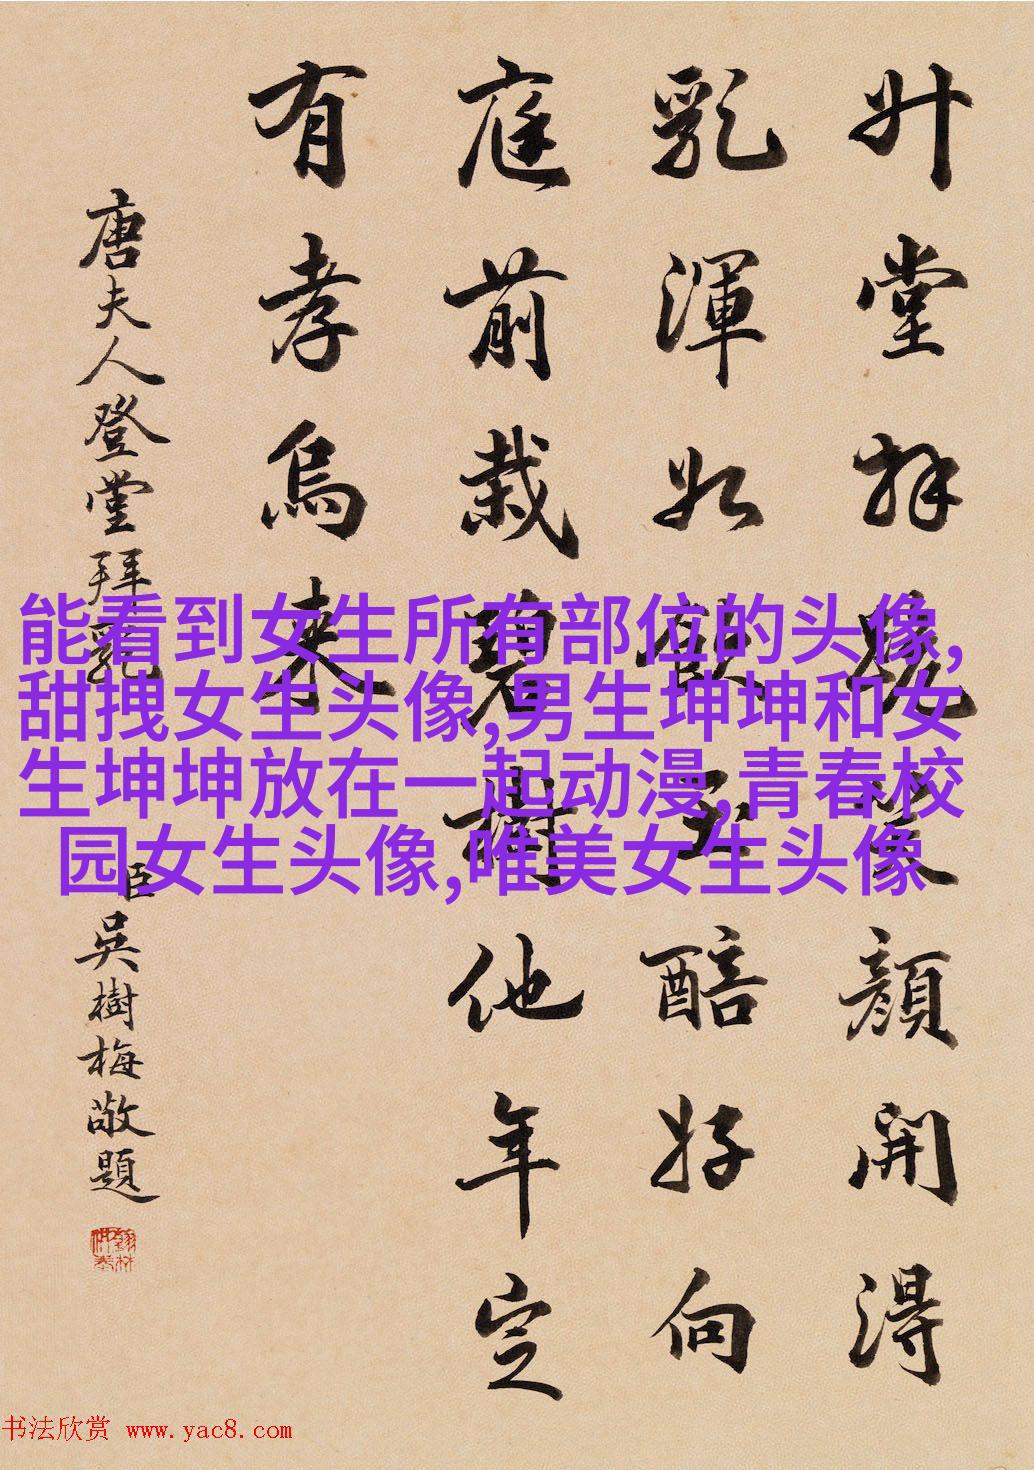 升堂拜笑顏開得
乳渾如飲玉醅好向
庭前栽碧樹他年定
有孝烏來
唐夫人登堂拜乳
臣吳樹梅敬題
能看到女生所有部位的头像,
甜拽女生头像,男生坤坤和女
生坤坤放在一起动漫,青春校
园女生头像,唯美女生头像
书法欣赏 www.yac8.com